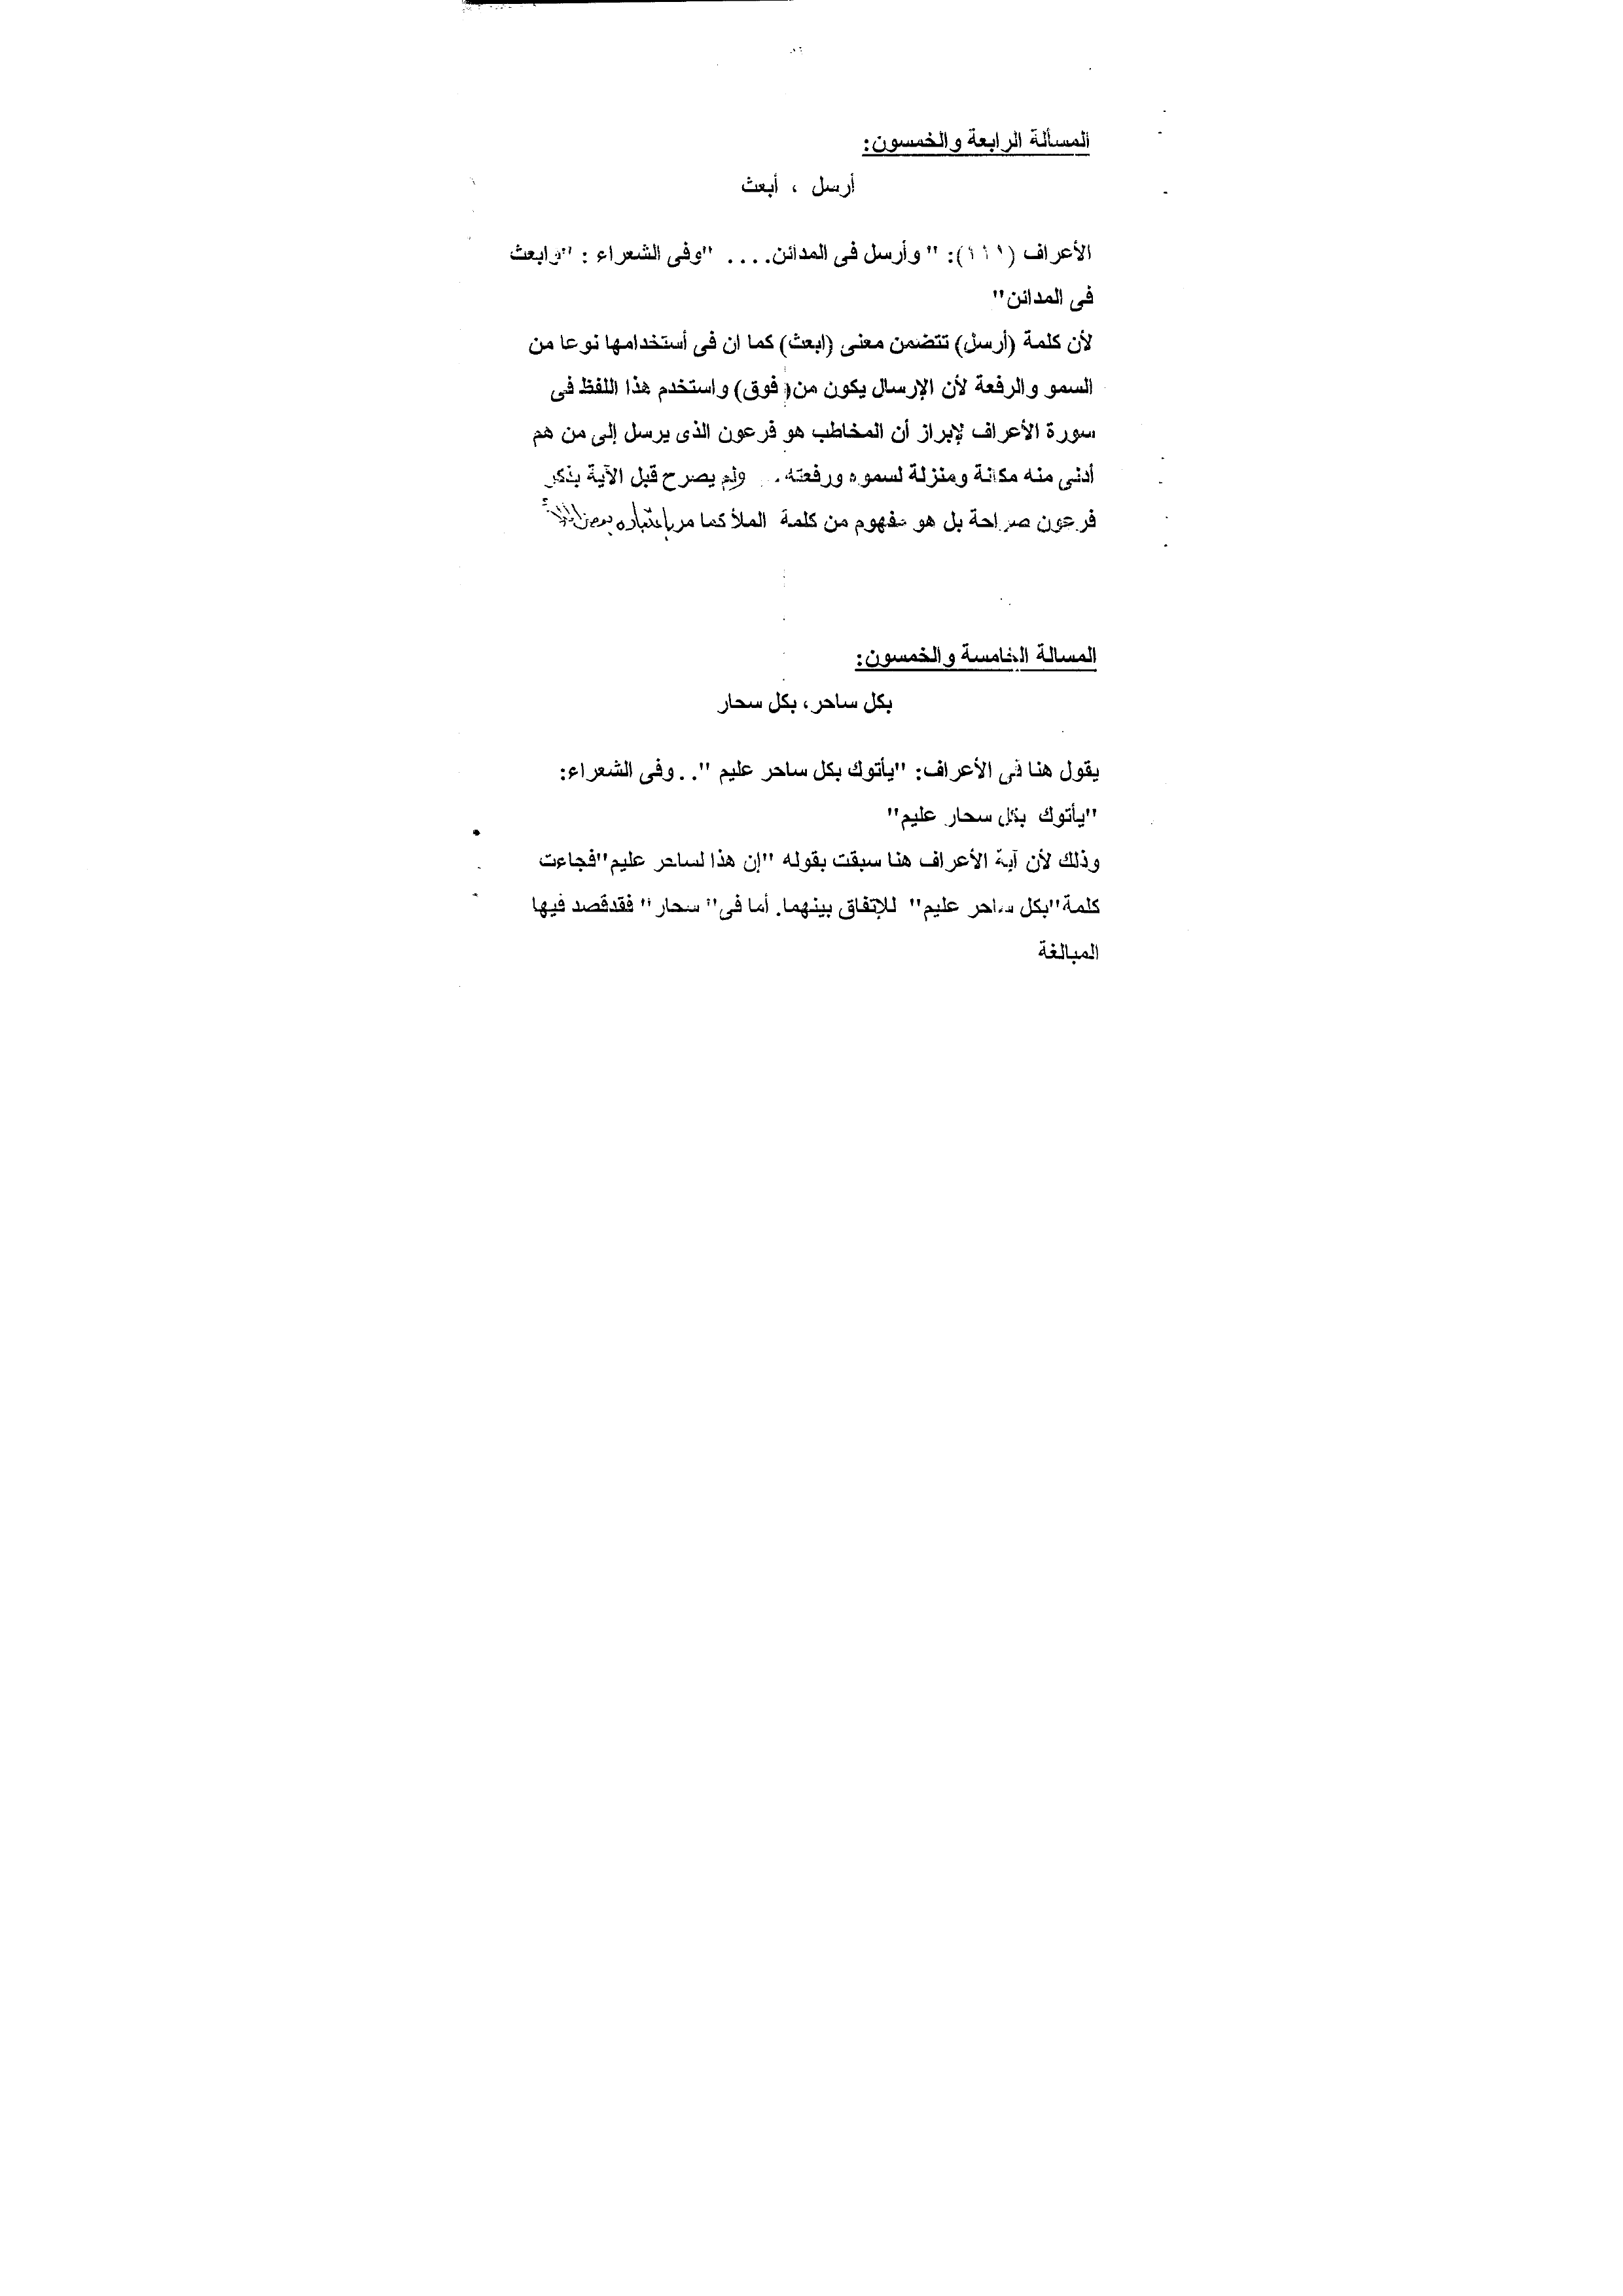 المسألة الرابعة والخمسون:
أرسل ، أبعث
الأعراف (١١١): " وأرسل فى المدائن.... "وفى الشعراء : "وابعث
فى المدائن"
لأن كلمة (أرسل) تتضمن معنى (ابعث) كما ان فى أستخدامها نوعا من
السمو والرفعة لأن الإرسال يكون من( فوق) واستخدم هذا اللفظ فى
سورة الأعراف لإبراز أن المخاطب هو فرعون الذى يرسل إلى من هم
أدنى منه مكانة ومنزلة لسموه ورفعته.. ولم يصرح قبل الآية بذكر
فرعون صراحة بل هو مفهوم من كلمة الملأ كما مر بإعتباره
المسالة الخامسة والخمسون:
بكل ساحر، بكل سحار
يقول هنا فى الأعراف: "يأتوك بكل ساحر عليم "..وفى الشعراء:
"يأتوك بكل سحار عليم"
وذلك لأن آية الأعراف هنا سبقت بقوله "إن هذا لساحر عليم"فجاءت
كلمة"بكل ساحر عليم" للإتفاق بينهما. أما فى" سحار" فقدقصد فيها
المبالغة